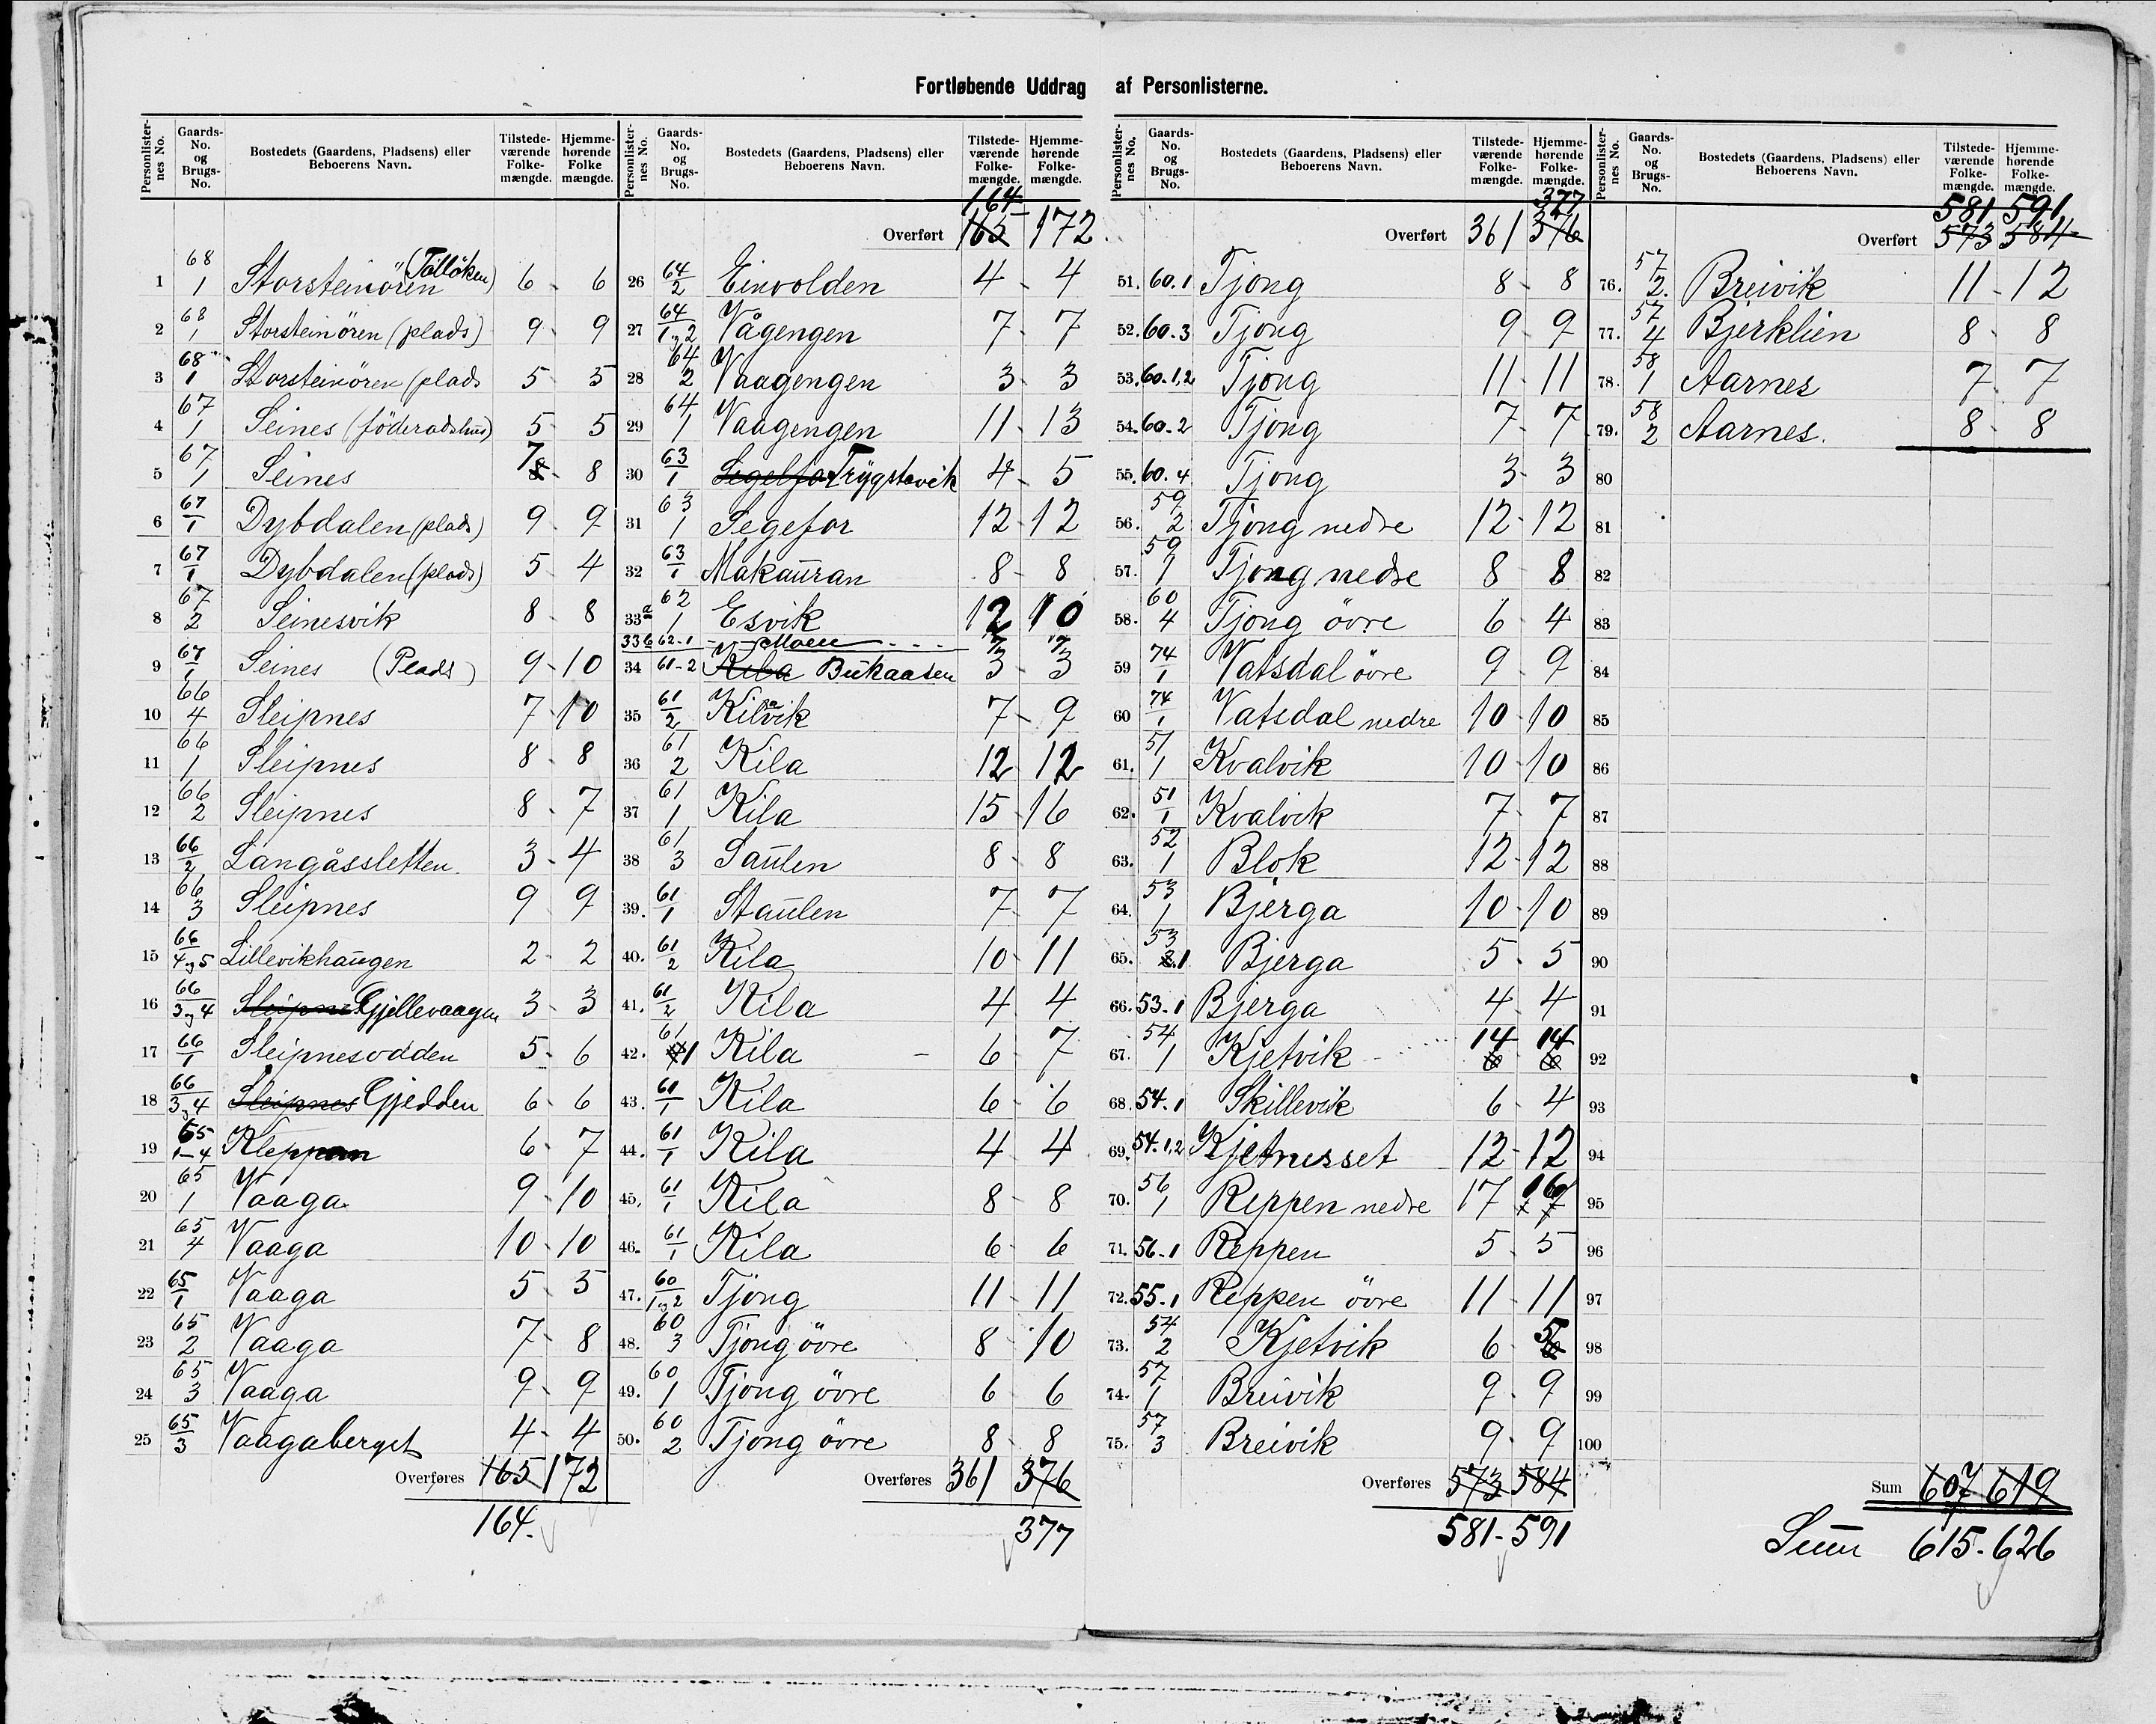 Fortløbende Uddrag af Personlisterne.
Personlisternes No. Gaards-No. og Brugs-No. Bostedets (Gaardens, Pladsens) eller Beboerens Navn. Tilstedeværende Folkemængde. Hjemmehørende Folke mængde.
1 68/1 Storsteinören (Tollöken) 6 - 6
2 68/1 Storsteinören (plads) 9 - 9
3 68/1 Storsteinören (plads 5 - 5
4 67/1 Seines (föderadshus) 5 - 5
5 67/1 Seines 7 8 - 8
6 67/1 Dybdalen (plads) 9 - 9
7 67/1 Dybdalen (plads) 5 - 4
8 67/2 Seinesvik 8 - 8
9 67/1 Seines (Plads) 9 - 10
10 66/4 Sleipnes 7 - 10
11 66/1 Sleipnes 8 - 8
12 66/2 Sleipnes 8 - 7
13 66/2 Langåssletten. 3 - 4
14 66/3 Sleipnes 9 9
15 66/4 og 5 Lillevikhaugen 2 - 2
16 66/3 og 4 Sleipnes Gjellevaagen 3 - 3
17 66/1 Sleipnesodden 5 - 6
18 66/3 og 4 Sleipnes Gjedden 6 - 6
19 65/1-4 Kleppan 6 - 7
20 65/1 Vaaga 9 - 10
21 65/4 Vaaga 10 - 10
22 65/1 Vaaga 5 - 5
23 65/2 Vaaga 7 - 8
24 65/3 Vaaga 9 - 9
25 65/3 Vaagaberget 4 - 4
Overføres 165 172
164.
Personlisternes No. Gaards-No. og Brugs-No. Bostedets (Gaardens, Pladsens) eller Beboerens Navn. Tilstedeværende Folkemængde. Hjemmehørende Folkemængde.
164
Overført 165 172
26 64/2 Einvolden 4 - 4
27 64/1 og 2 Vågengen 7 - 7
28 64/2 Vaagengen 3 - 3
29 64/1 Vaagengen 11 - 13
30 63/1 Segelfor Trygstavik 4 - 5
31 63/1 Segefor 12 - 12
32 63/1 Makauran 8 - 8
33a 62/1 Esvik 12 10
33b 62-1 Moen
34 61-2 Kila Bukaasen 3 - 3
35 61/2 Kilavik 7 - 9
36 61/2 Kila 12 - 12
37 61/1 Kila 15 - 16
38 61/3 Saulen 8 - 8
39. 61/1 Staulen 7 - 7
40. 61/2 Kila 10 - 11
41. 61/2 Kila 4 - 4
42. 61/1 Kila - 6 - 7
43. 61/1 Kila 6 - 6
44. 61/1 Kila 4 - 4
45. 61/1 Kila 8 - 8
46. 61/1 Kila 6 - 6
47. 60/1 og 2 Tjong 11 - 11
48. 60/3 Tjong övre 8 - 10
49. 60/1 Tjong övre 6 - 6
50. 60/2 Tjong övre 8 - 8
Overføres 361 376
377
Personlisternes No. Gaards-No. og Brugs-No. Bostedets (Gaardens, Pladsens) eller Beboerens Navn. Tilstedeværende Folkemængde. Hjemmehørende Folkemængde.
377
Overført 361 376
51. 60.1 Tjong 8 - 8
52. 60.3 Tjong 9 - 9
53. 60-1,2 Tjong 11 - 11
54. 60-2 Tjong 7 - 7
55. 60.4 Tjong 3 - 3
56. 59/2 Tjong nedre 12 - 12
57. 59/1 Tjong nedre 8 - 8
58. 60/4 Tjong övre 6 - 4
59 74/1 Vatsdal övre 9 - 9
60 74/1 Vatsdal nedre 10 - 10
61. 51/1 Kvalvik 10 - 10
62. 51/1 Kvalvik 7 - 7
63. 52/1 Blok 12 - 12
64. 53/1 Bjerga 10 - 10
65. 53/1 Bjerga 5 - 5
66. 53-1 Bjerga 4 - 4
67. 54/1 Kjetvik 14 14 6 6
68. 54.1 Skillevik 6 - 4
69. 54.1,2 Kjetnesset 12 - 12
70. 56/1 Reppen nedre 17 16
71. 56-1 Reppen 5 - 5
72. 55-1 Reppen övre 11 - 11
73. 54/2 Kjetvik 6 - 5
74. 57/1 Breivik 9 - 9
75. 57/3 Breivik 9 - 9
Overføres 573 584
581 - 591
Personlisternes No. Gaards-No. og Brugs-No. Bostedets (Gaardens, Pladsens) eller Beboerens Navn. Tilstedeværende Folkemængde. Hjemmehørende Folkemængde.
581 591
Overført 573 584
76. 57/2. Breivik 11 - 12
77. 57/4 Bjerklien 8 - 8
78. 58/1 Aarnes 7 - 7
79. 58/2 Aarnes. 8 - 8
80
81
82
83
84
85
86
87
88
89
90
91
92
93
94
95
96
97
98
99
100
Sum 607 619
Sum 615 - 626